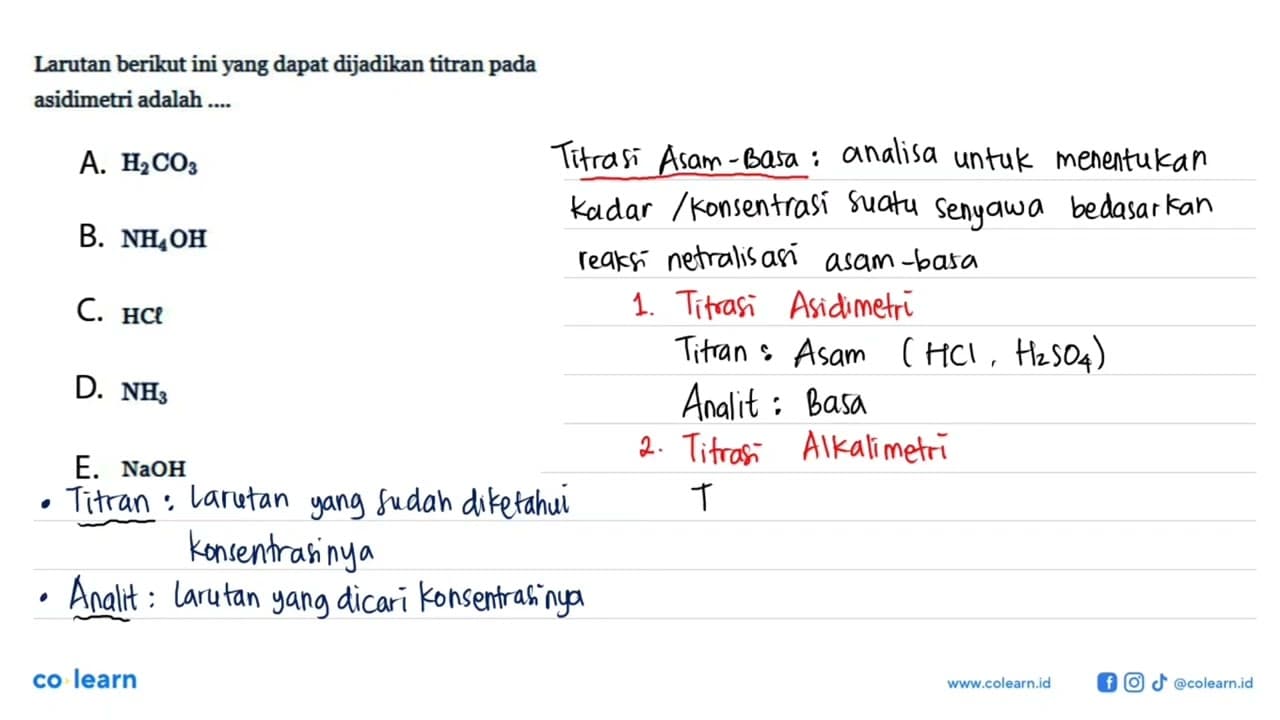 Larutan berikut ini yang dapat dijadikan titran pada
asidimetri adalah ....
A. H₂CO₃
B. NH₄OH
C. HCℓ
D. NH₃
E. NaOH
• Titran : Larutan yang sudah diketahui
konsentrasinya
• Analit : Larutan yang dicari konsentrasinya
Titrasi Asam-Basa : analisa untuk menentukan
kadar /konsentrasi suatu senyawa bedasarkan
reaksi netralisasi asam-basa
1. Titrasi Asidimetri
Titran : Asam (HCl, H₂SO₄)
Analit : Basa
2. Titrasi Alkalimetri
T
co learn
www.colearn.id
@colearn.id